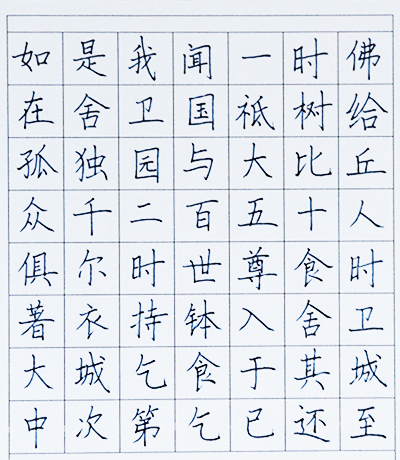 如是我闻一时佛
在舍卫国祇树给
孤独园与大比丘
众千二百五十人
俱尔时世尊食时
著衣持钵入舍卫
大城乞食于其城
中次第乞已还至